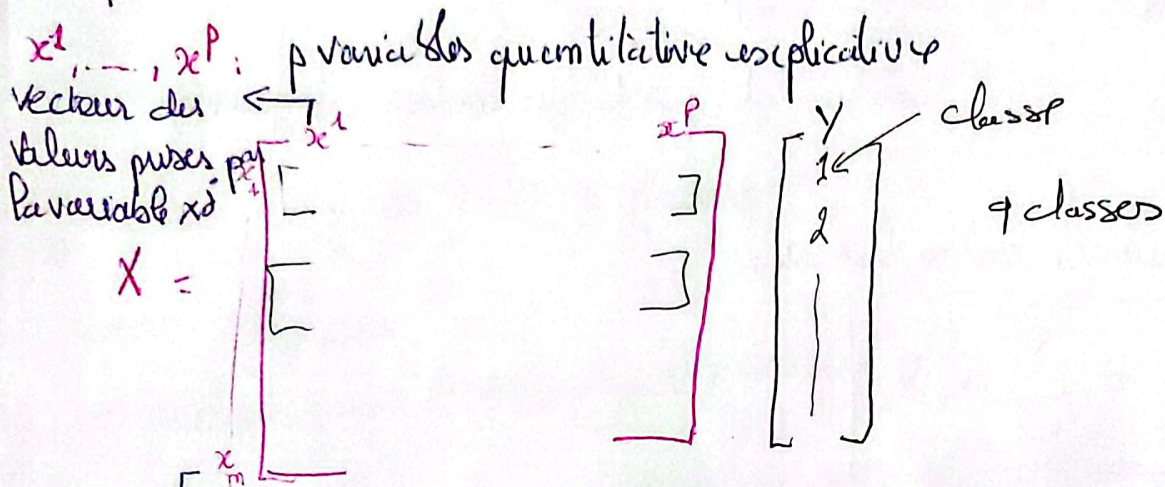 x¹, ..., xᵖ : p variables quantitative explicative
vecteur des ←
valeurs prises par
la variable xʲ
x¹ - - - xᵖ Y classe
x₁ 1
2 q classes
X =
xₙ